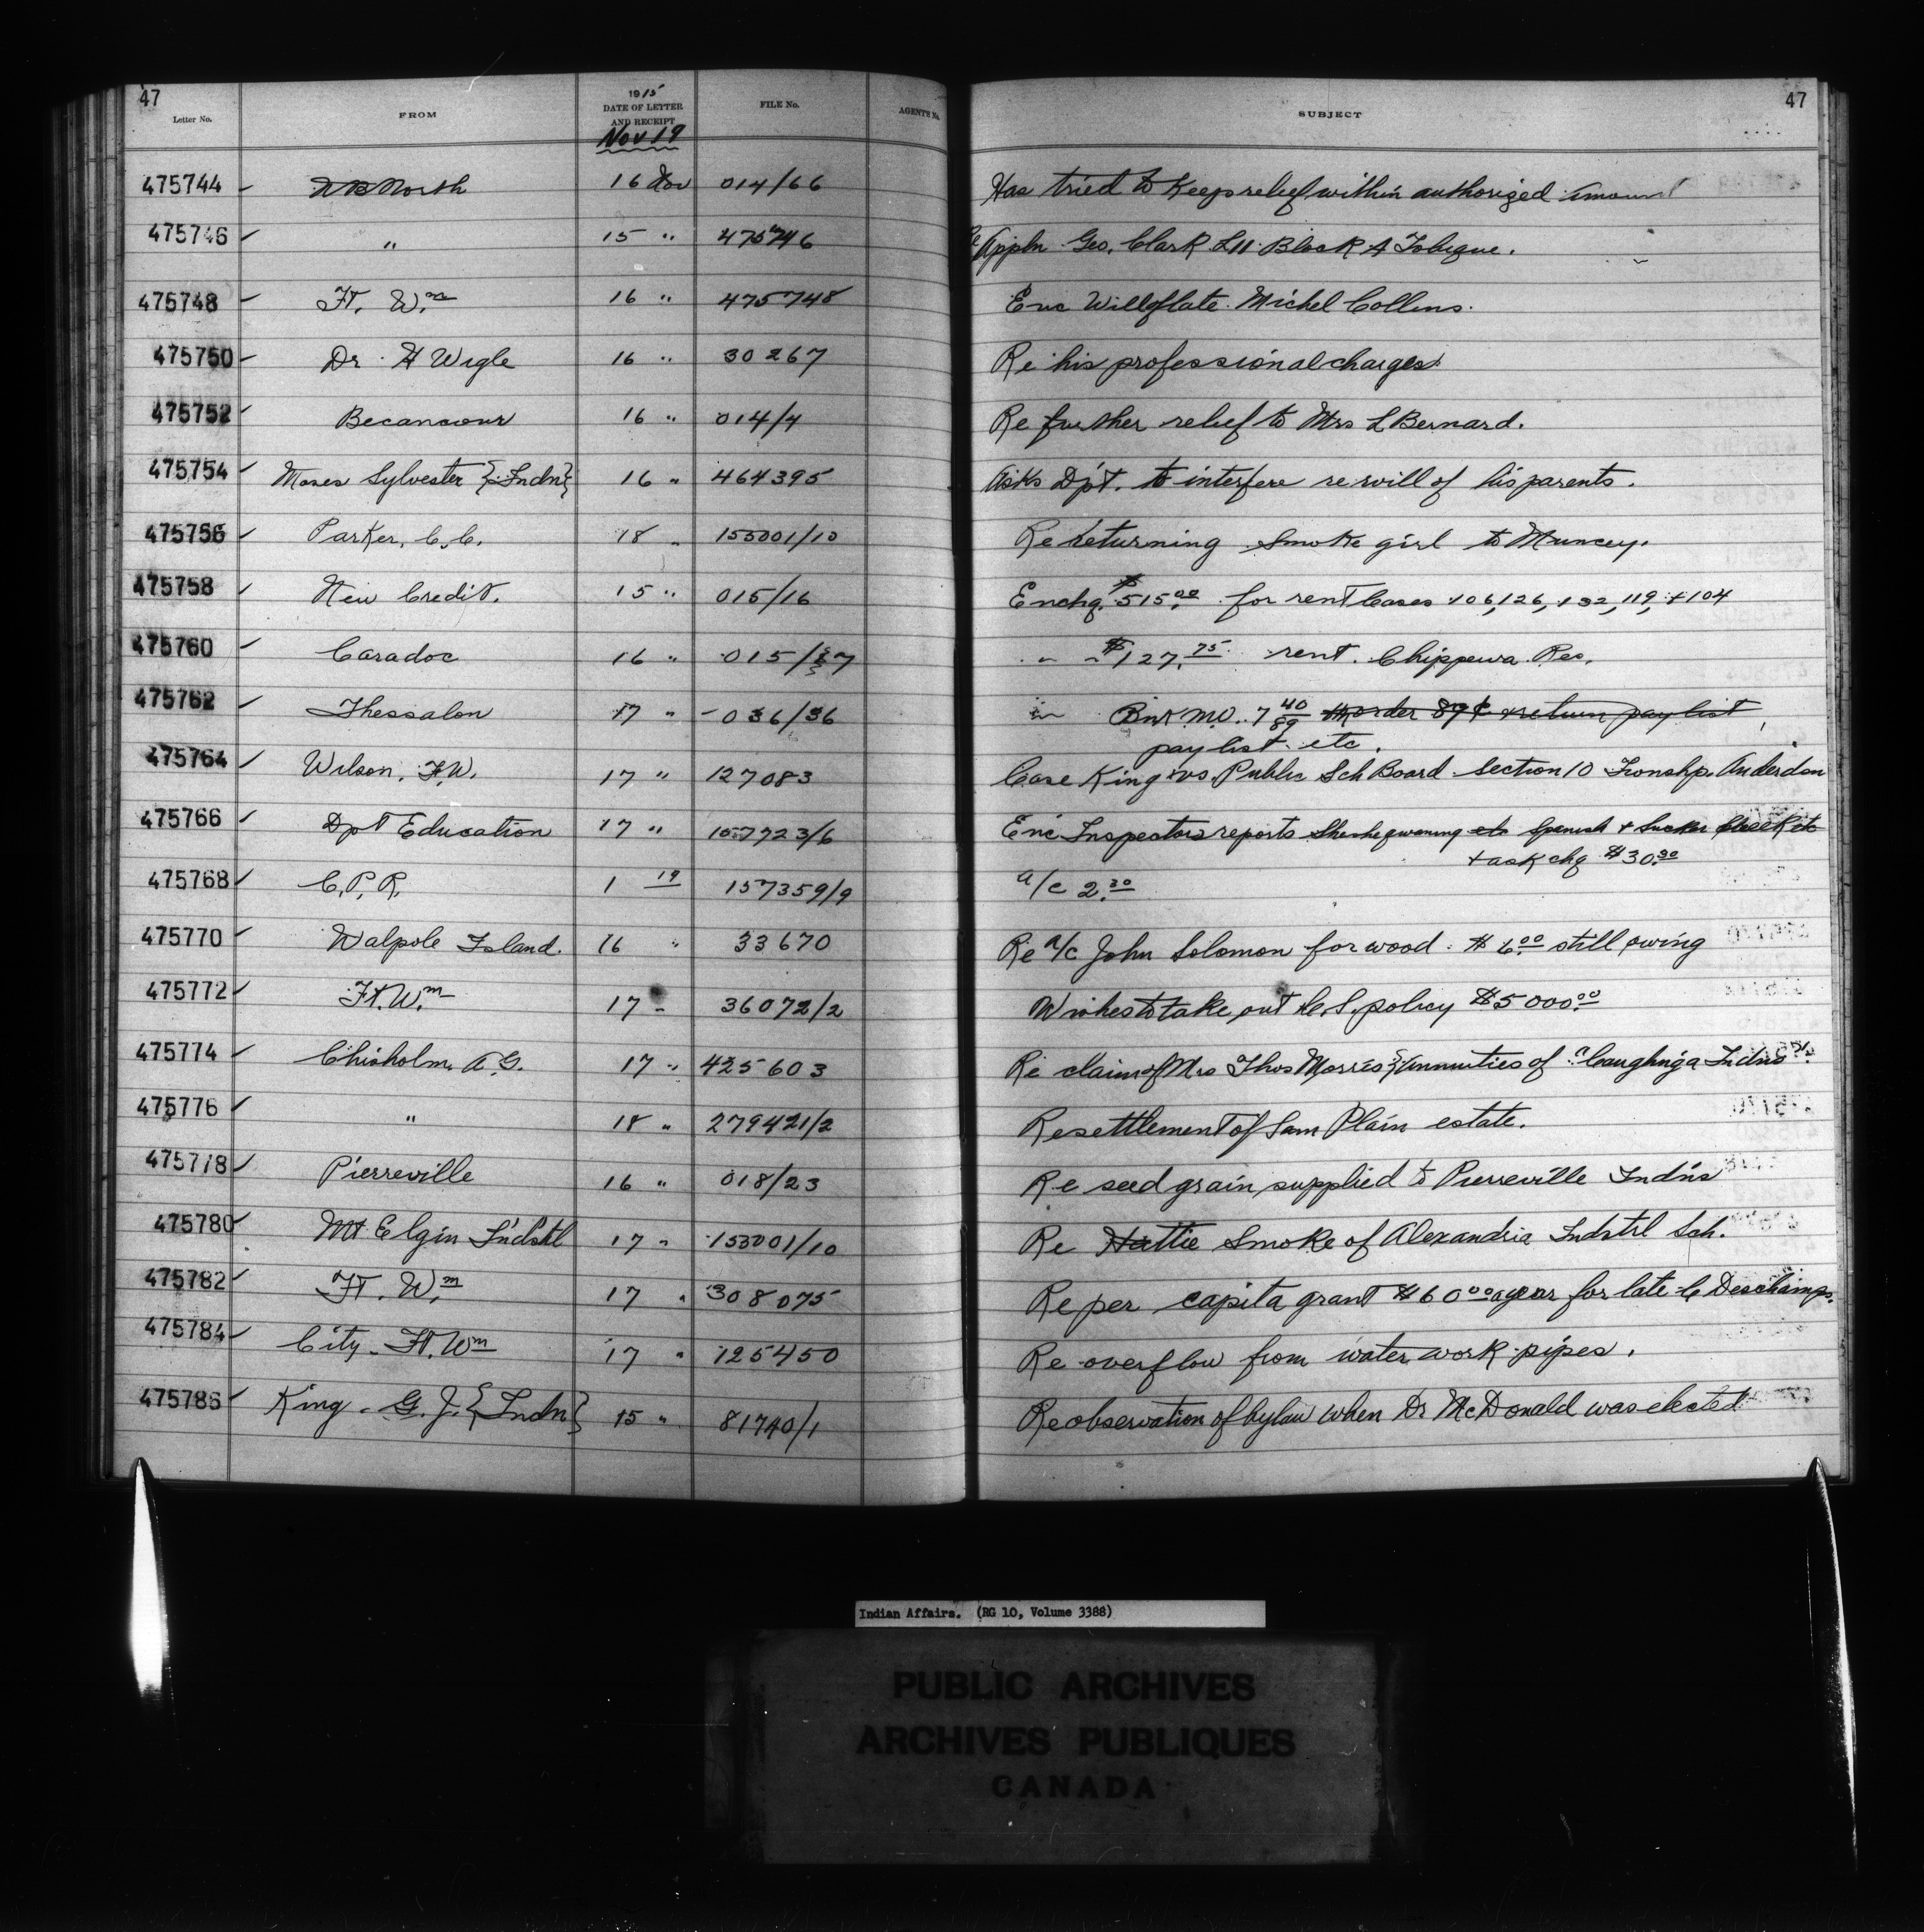 47
Letter No. FROM 1915 DATE OF LETTER AND RECEIPT FILE No. AGENT'S No. SUBJECT 47
Nov 19
475744 N B North 16 Nov 014/66 Has tried to keep relief within authorized amount
475746 " 15 " 475746 Re Appln Geo. Clark L 11 Block A Tobique.
475748 Ft. Wm 16 " 475748 Enc Will of late Michel Collins.
475750 Dr. H Wigle 16 " 30267 Re his professional charges.
475752 Becancour 16 " 014/4 Re further relief to Mrs L Bernard.
475754 Moses Sylvester {Indn} 16 " 464395 Asks Dpt. to interfere re will of his parents.
475756 Parker, C.C. 18 " 153001/10 Re returning Smoke girl to Muncey.
475758 New Credit. 15 " 015/16 Enchq. $515.00 for rent Leases 106, 126, 132, 119, + 104
475760 Caradoc 16 " 015/27 " " $127.75 rent. Chippewa Res.
475762 Thessalon 17 " 036/36 " Bnk MO. 7 40 89 M order 89¢ + return pay list
pay list etc.
475764 Wilson, F.W. 17 " 127083 Case King vs. Public Sch Board Section 10 Townshp. Anderdon
475766 Dpt Education 17 " 157723/6 Enc Inspectors reports Sheshegwaning etc Spanish + Sucker Creek etc
+ ask chq $30.00
475768 C.P.R. 1 19 157359/9 a/c 2.30
475770 Walpole Island. 16 " 33670 Re a/c John Solomon for wood. $6.00 still owing
475772 Ft. Wm 17 " 36072/2 Wishes to take out policy $5000.00
475774 Chisholm, A.G. 17 " 425603 Re claim of Mrs Thos Morris Annuities of "Caughn'ga Indns".
475776 " 18 " 279421/2 Re settlement of Sam Plain estate.
475778 Pierreville 16 " 018/23 Re seed grain supplied to Pierreville Indns
475780 Mt Elgin Indstl 17 " 153001/10 Re Hattie Smoke of Alexandria Indstrl Sch.
475782 Ft. Wm 17 " 308075 Re per capita grant $60.00 a year for late C Deschamps.
475784 City - Ft. Wm 17 " 125450 Re overflow from water work pipes.
475786 King - G. J. {Indn} 15 " 81740/1 Re observation of bylaw when Dr McDonald was elected
Indian Affairs. (RG 10, Volume 3388)
PUBLIC ARCHIVES
ARCHIVES PUBLIQUES
CANADA